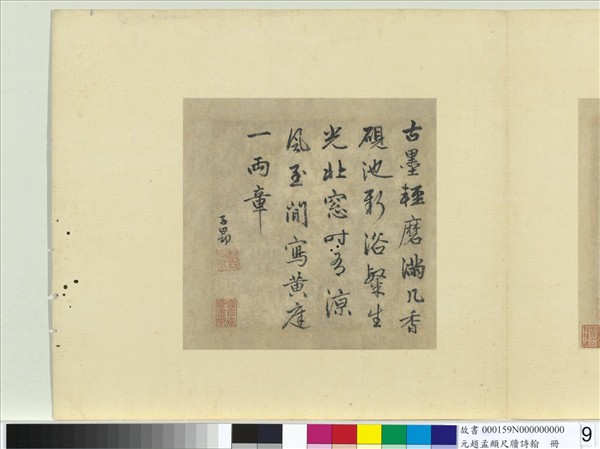 古墨輕磨滿几香
硯池新浴粲生
光北窓時有涼
風至閒寫黃庭
一兩章
子昂
故書 000159N000000000
元趙孟頫尺牘詩翰 冊
9